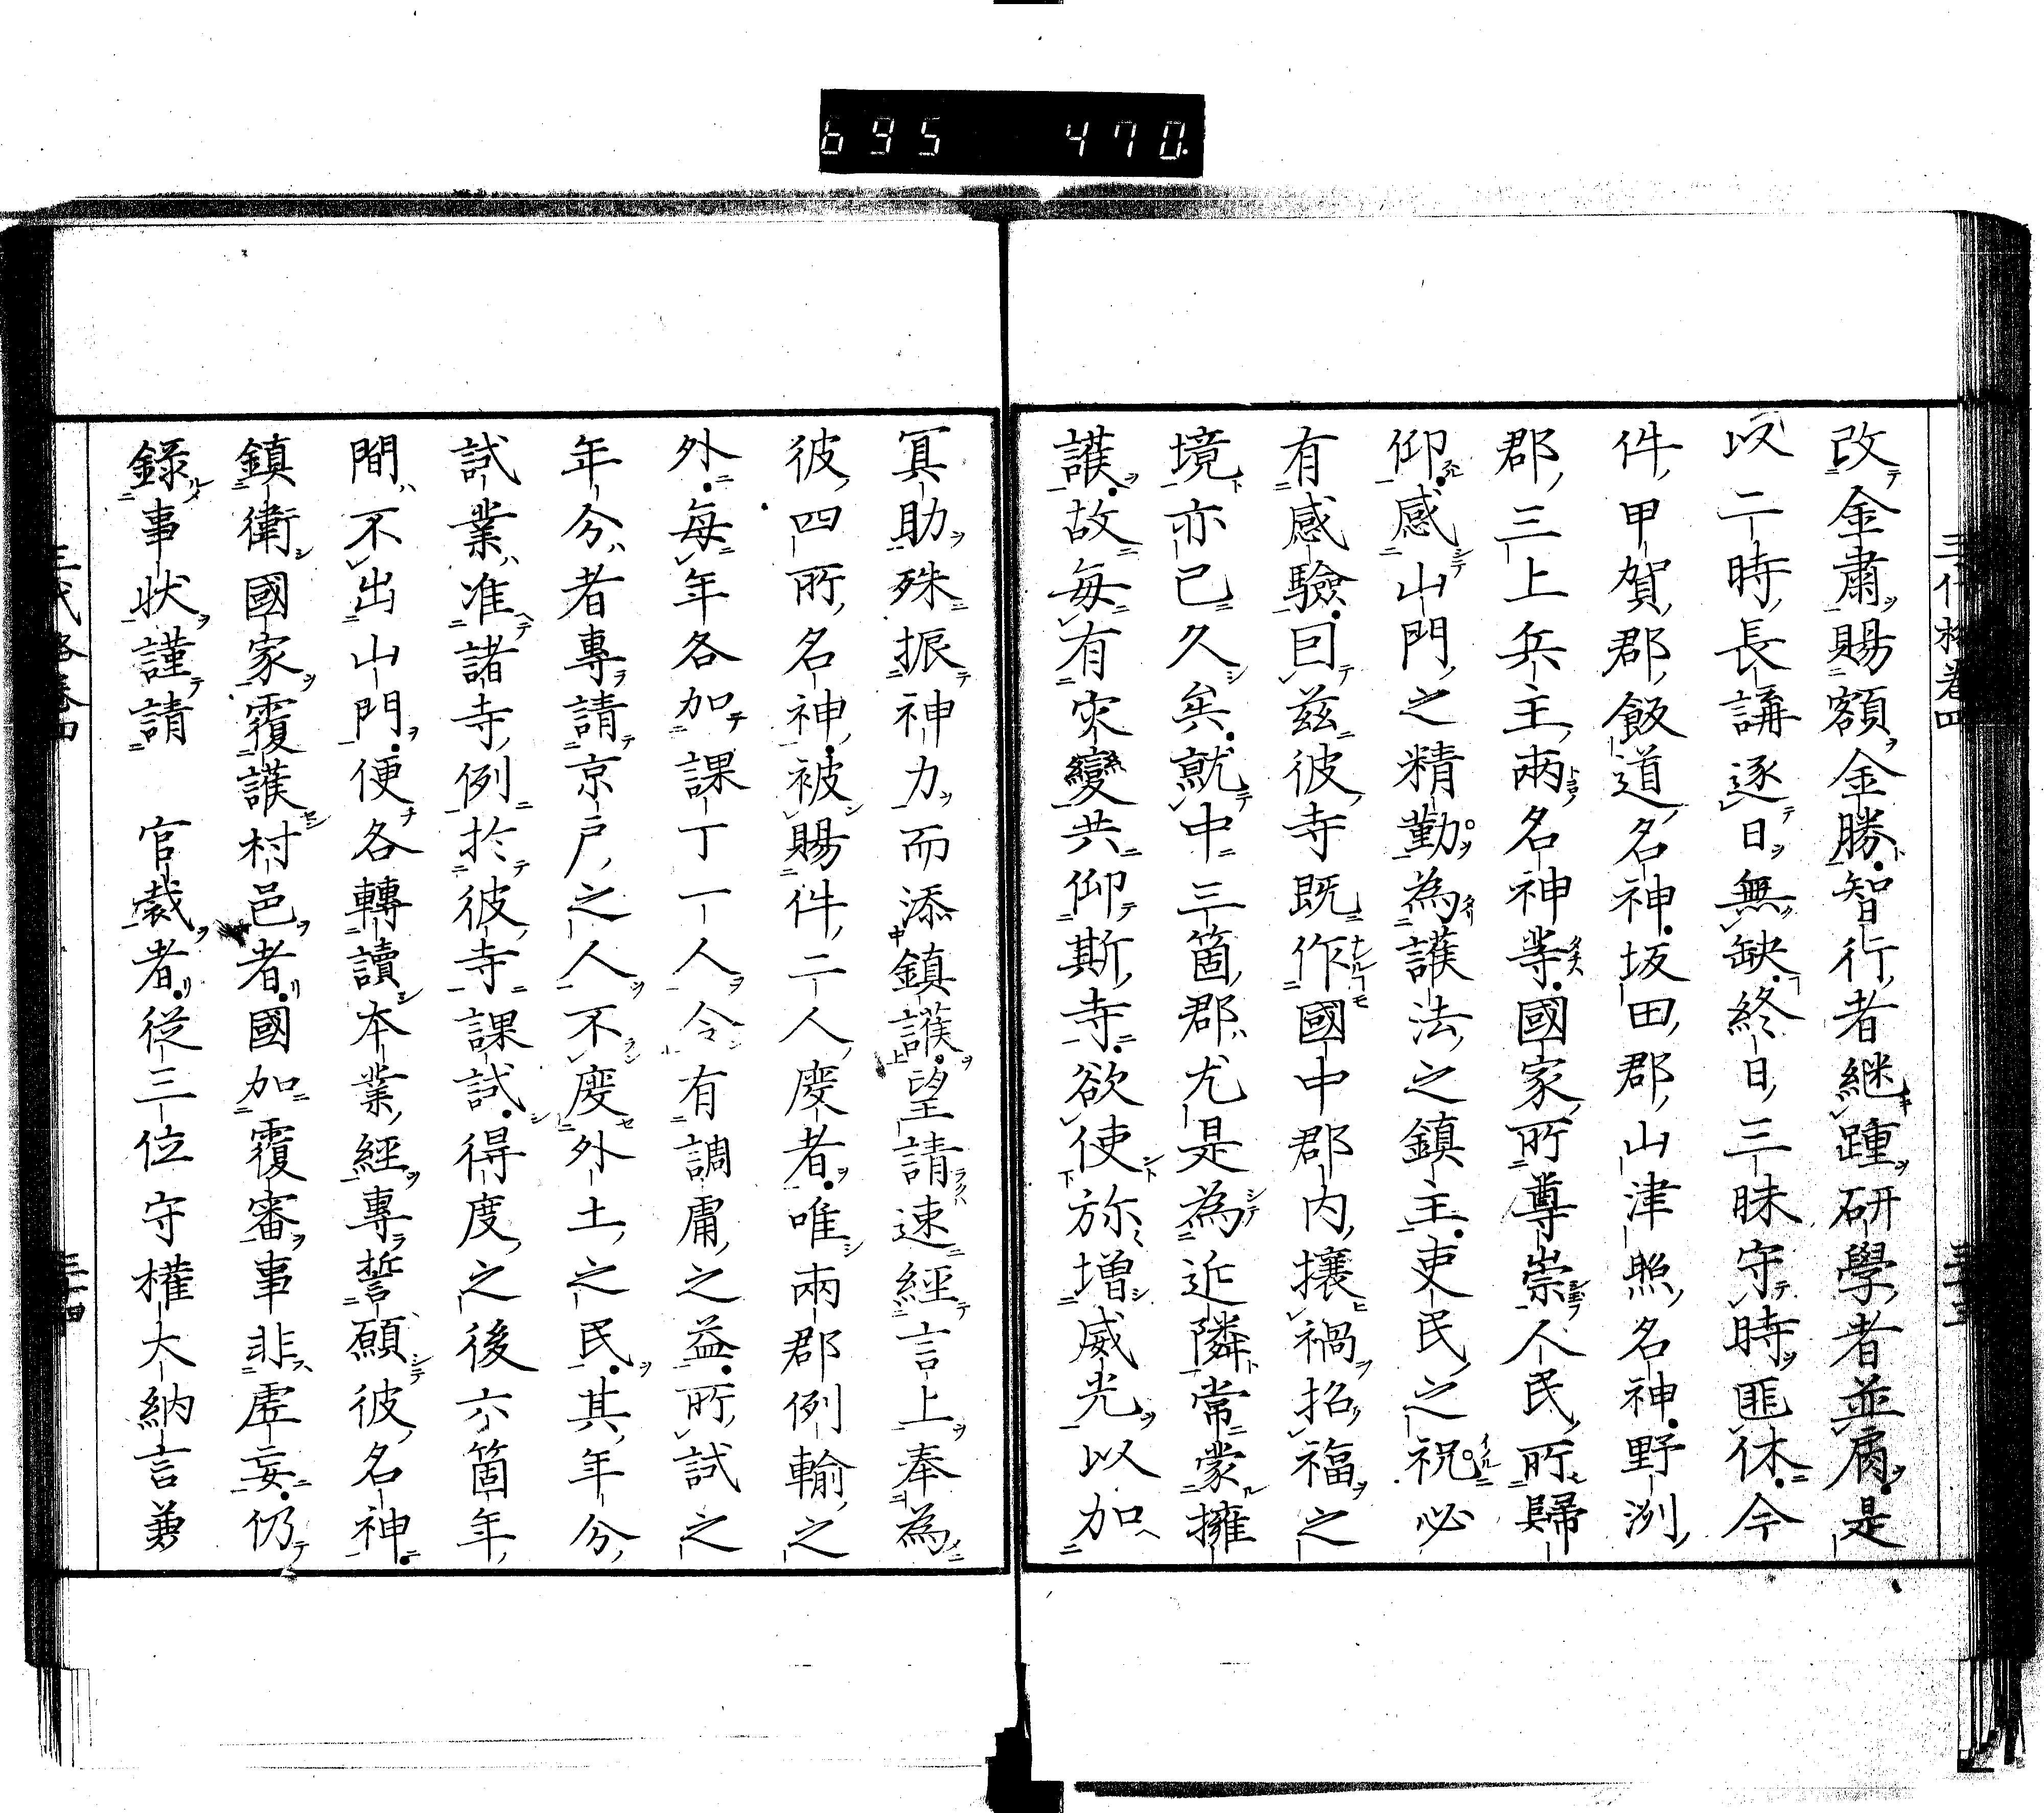 695 470
改金肅賜額金勝智行者継踵研學者並肩是
以二時長講逐日無缺終日三昧守時匪休今
件甲賀郡飯道名神坂田郡山津照名神野洌
郡三上兵主兩名神等國家所尊崇人民所歸
仰感山門之精勤為護法之鎮主吏民之祝必
有感驗因茲彼寺既作國中郡内攘禍招福之
境亦已久矣就中三箇郡尤是為近隣常蒙擁
護故毎有灾變共仰斯寺欲使弥增威光以加
冥助殊振神力而添鎮護望請速經言上奉為
彼四所名神被賜件二人度者唯兩郡例輸之
外毎年各加課丁一人令有調庸之益所試之
年分者專請京戶之人不度外土之民其年分
試業准諸寺例於彼寺課試得度之後六箇年
間不出山門便各轉讀本業經專誓願彼名神
鎮衛國家覆護村邑者國加覆審事非虛妄仍
錄事狀謹請　官裁者從三位守權大納言兼